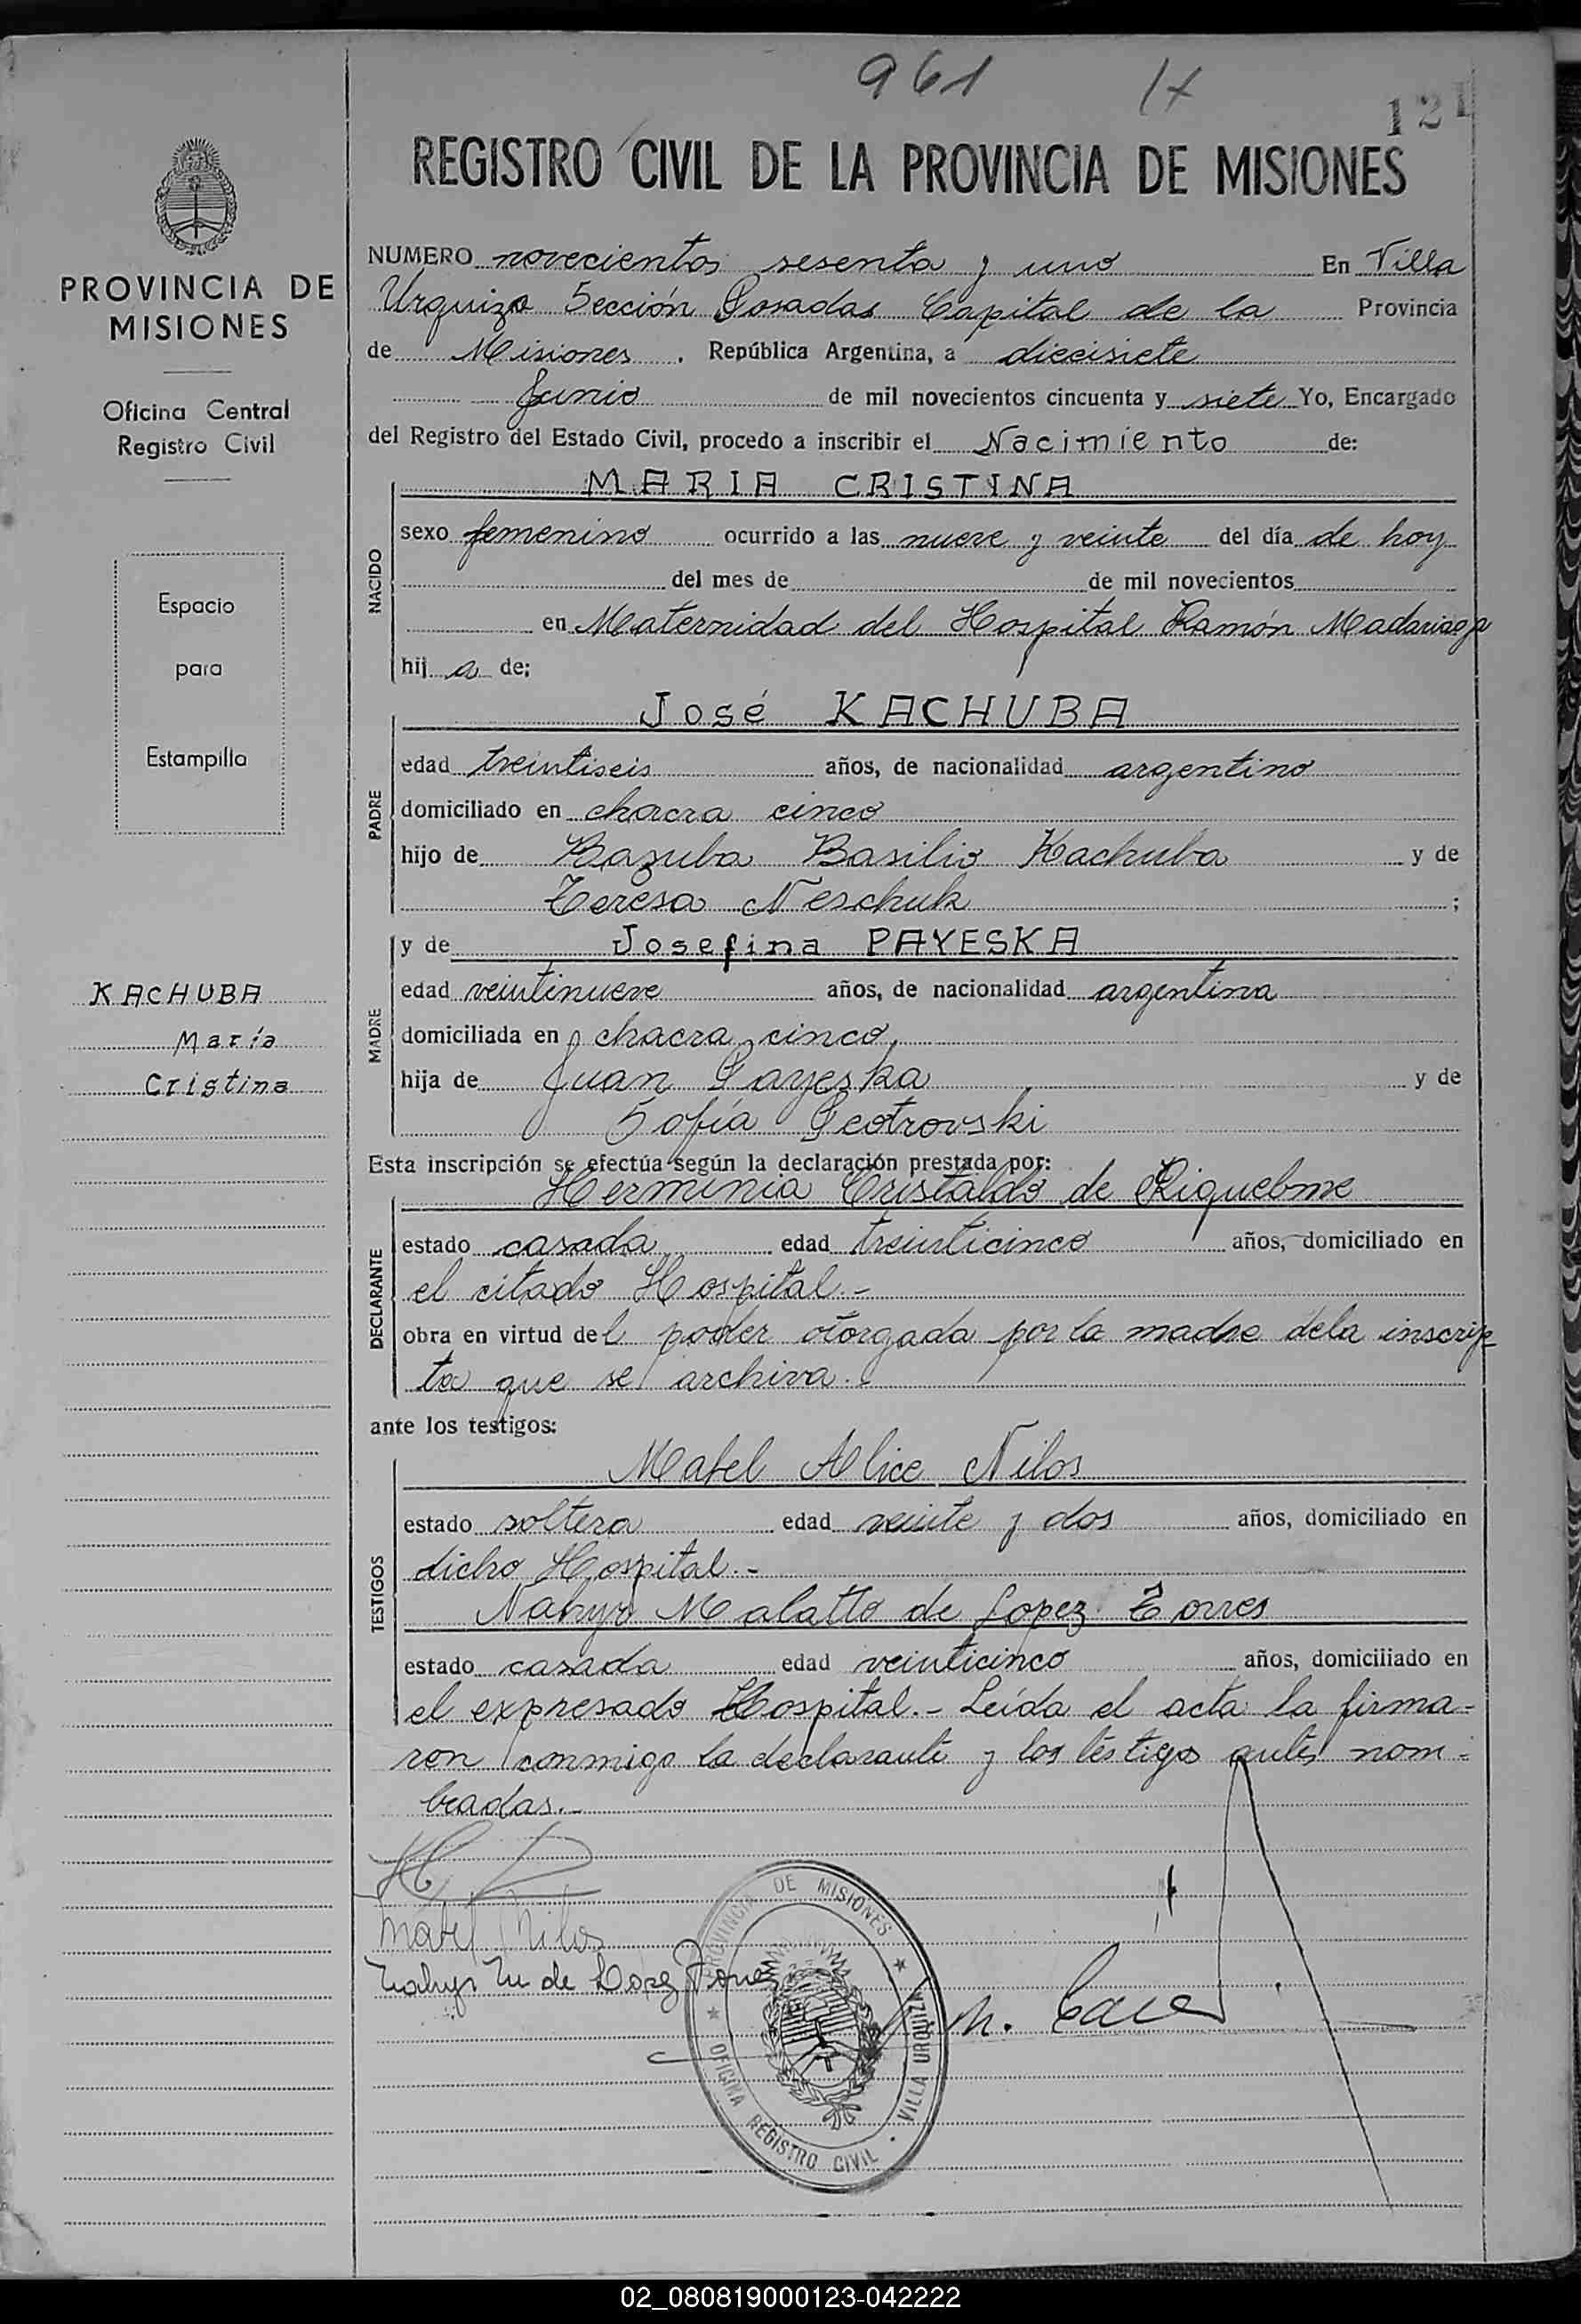 961
121
REGISTRO CIVIL DE LA PROVINCIA DE MISIONES
PROVINCIA DE
MISIONES
Oficina Central
Registro Civil
Espacio
para
Estampilla
KACHUBA
María
Cristina
NUMERO novecientos sesenta y uno En Villa
Urquiza Sección Posadas Capital de la Provincia
de Misiones. República Argentina, a diecisiete
Junio de mil novecientos cincuenta y siete Yo, Encargado
del Registro del Estado Civil, procedo a inscribir el Nacimiento de:
NACIDO
MARIA CRISTINA
sexo femenino ocurrido a las nueve y veinte del día de hoy
del mes de de mil novecientos
en Maternidad del Hospital Ramón Madariaga
hij a de:
PADRE
José KACHUBA
edad treintiseis años, de nacionalidad argentino
domiciliado en chacra cinco
hijo de Bazuba Basilio Kachuba y de
Teresa Neschuk ;
MADRE
y de Josefina PAYESKA
edad veintinueve años, de nacionalidad argentina
domiciliada en chacra cinco,
hija de Juan Payeska y de
Sofía Peotrovski
Esta inscripción se efectúa según la declaración prestada por:
DECLARANTE
Herminia Cristaldo de Riquelme
estado casada edad treinticinco años, domiciliado en
el citado Hospital.-
obra en virtud del poder otorgada por la madre dela inscrip-
ta que se archiva.
ante los testigos:
TESTIGOS
Mabel Alice Nilos
estado soltera edad veinte y dos años, domiciliado en
dicho Hospital.-
Nahyr Malatto de Lopez Torres
estado casada edad veinticinco años, domiciliado en
el expresado Hospital.- Leída el acta la firma-
ron conmigo la declarante y los testigos antes nom-
bradas.-
Mabel Nilos
Nahyr M de Lopez Torres
PROVINCIA DE MISIONES
OFICINA REGISTRO CIVIL • VILLA URQUIZA
02_080819000123-042222